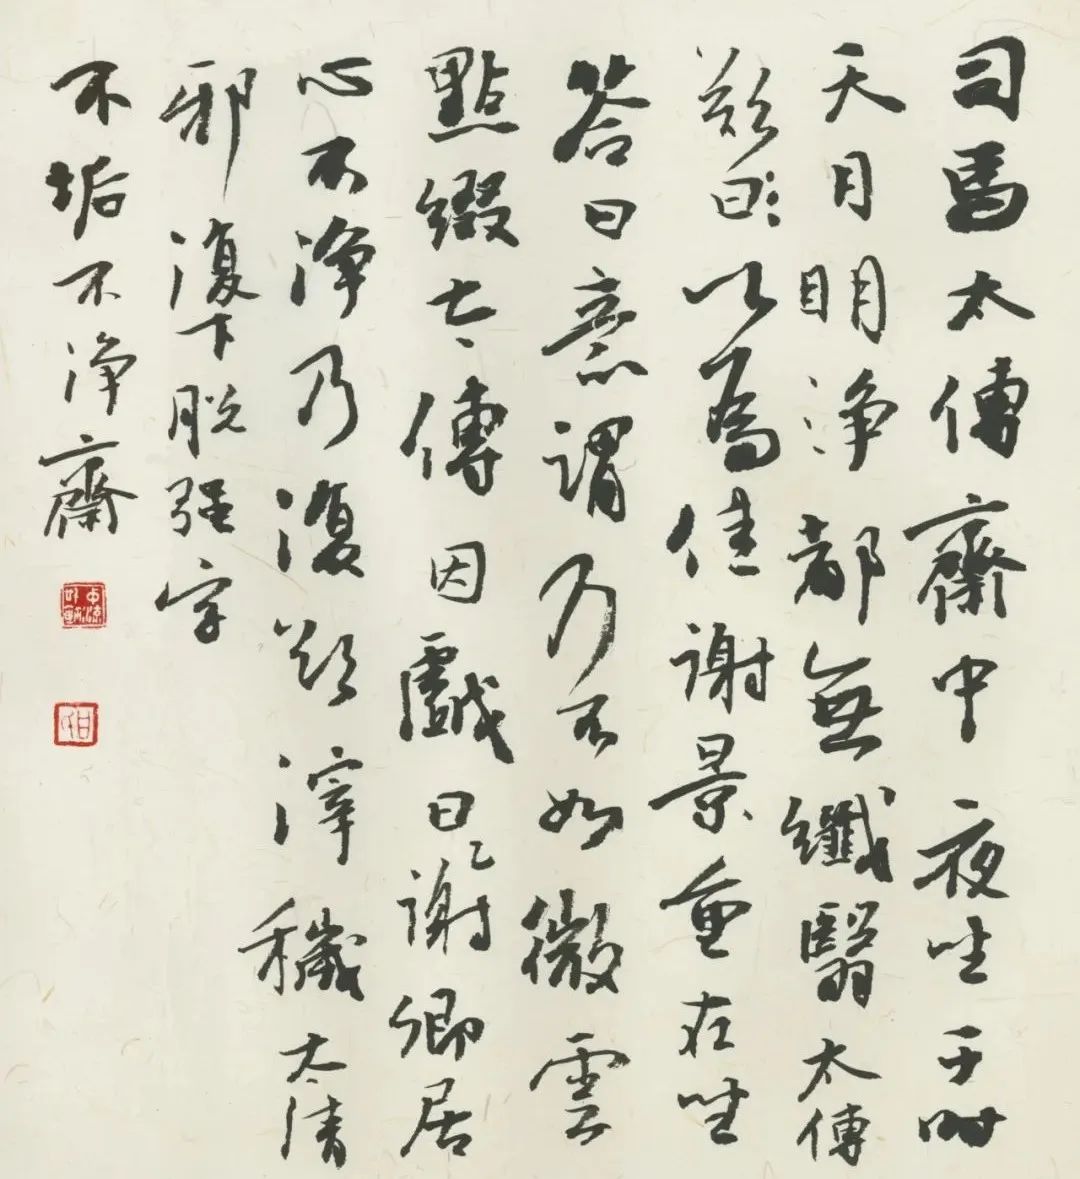 司馬太傅齋中夜坐于時
天月明淨都無纖翳太傅
歎曰以爲佳謝景重在坐
答曰意謂乃不如微雲
點綴太傅因戲曰謝卿居
心不淨乃復欲滓穢太清
邪 復下脱强字
不垢不淨齋